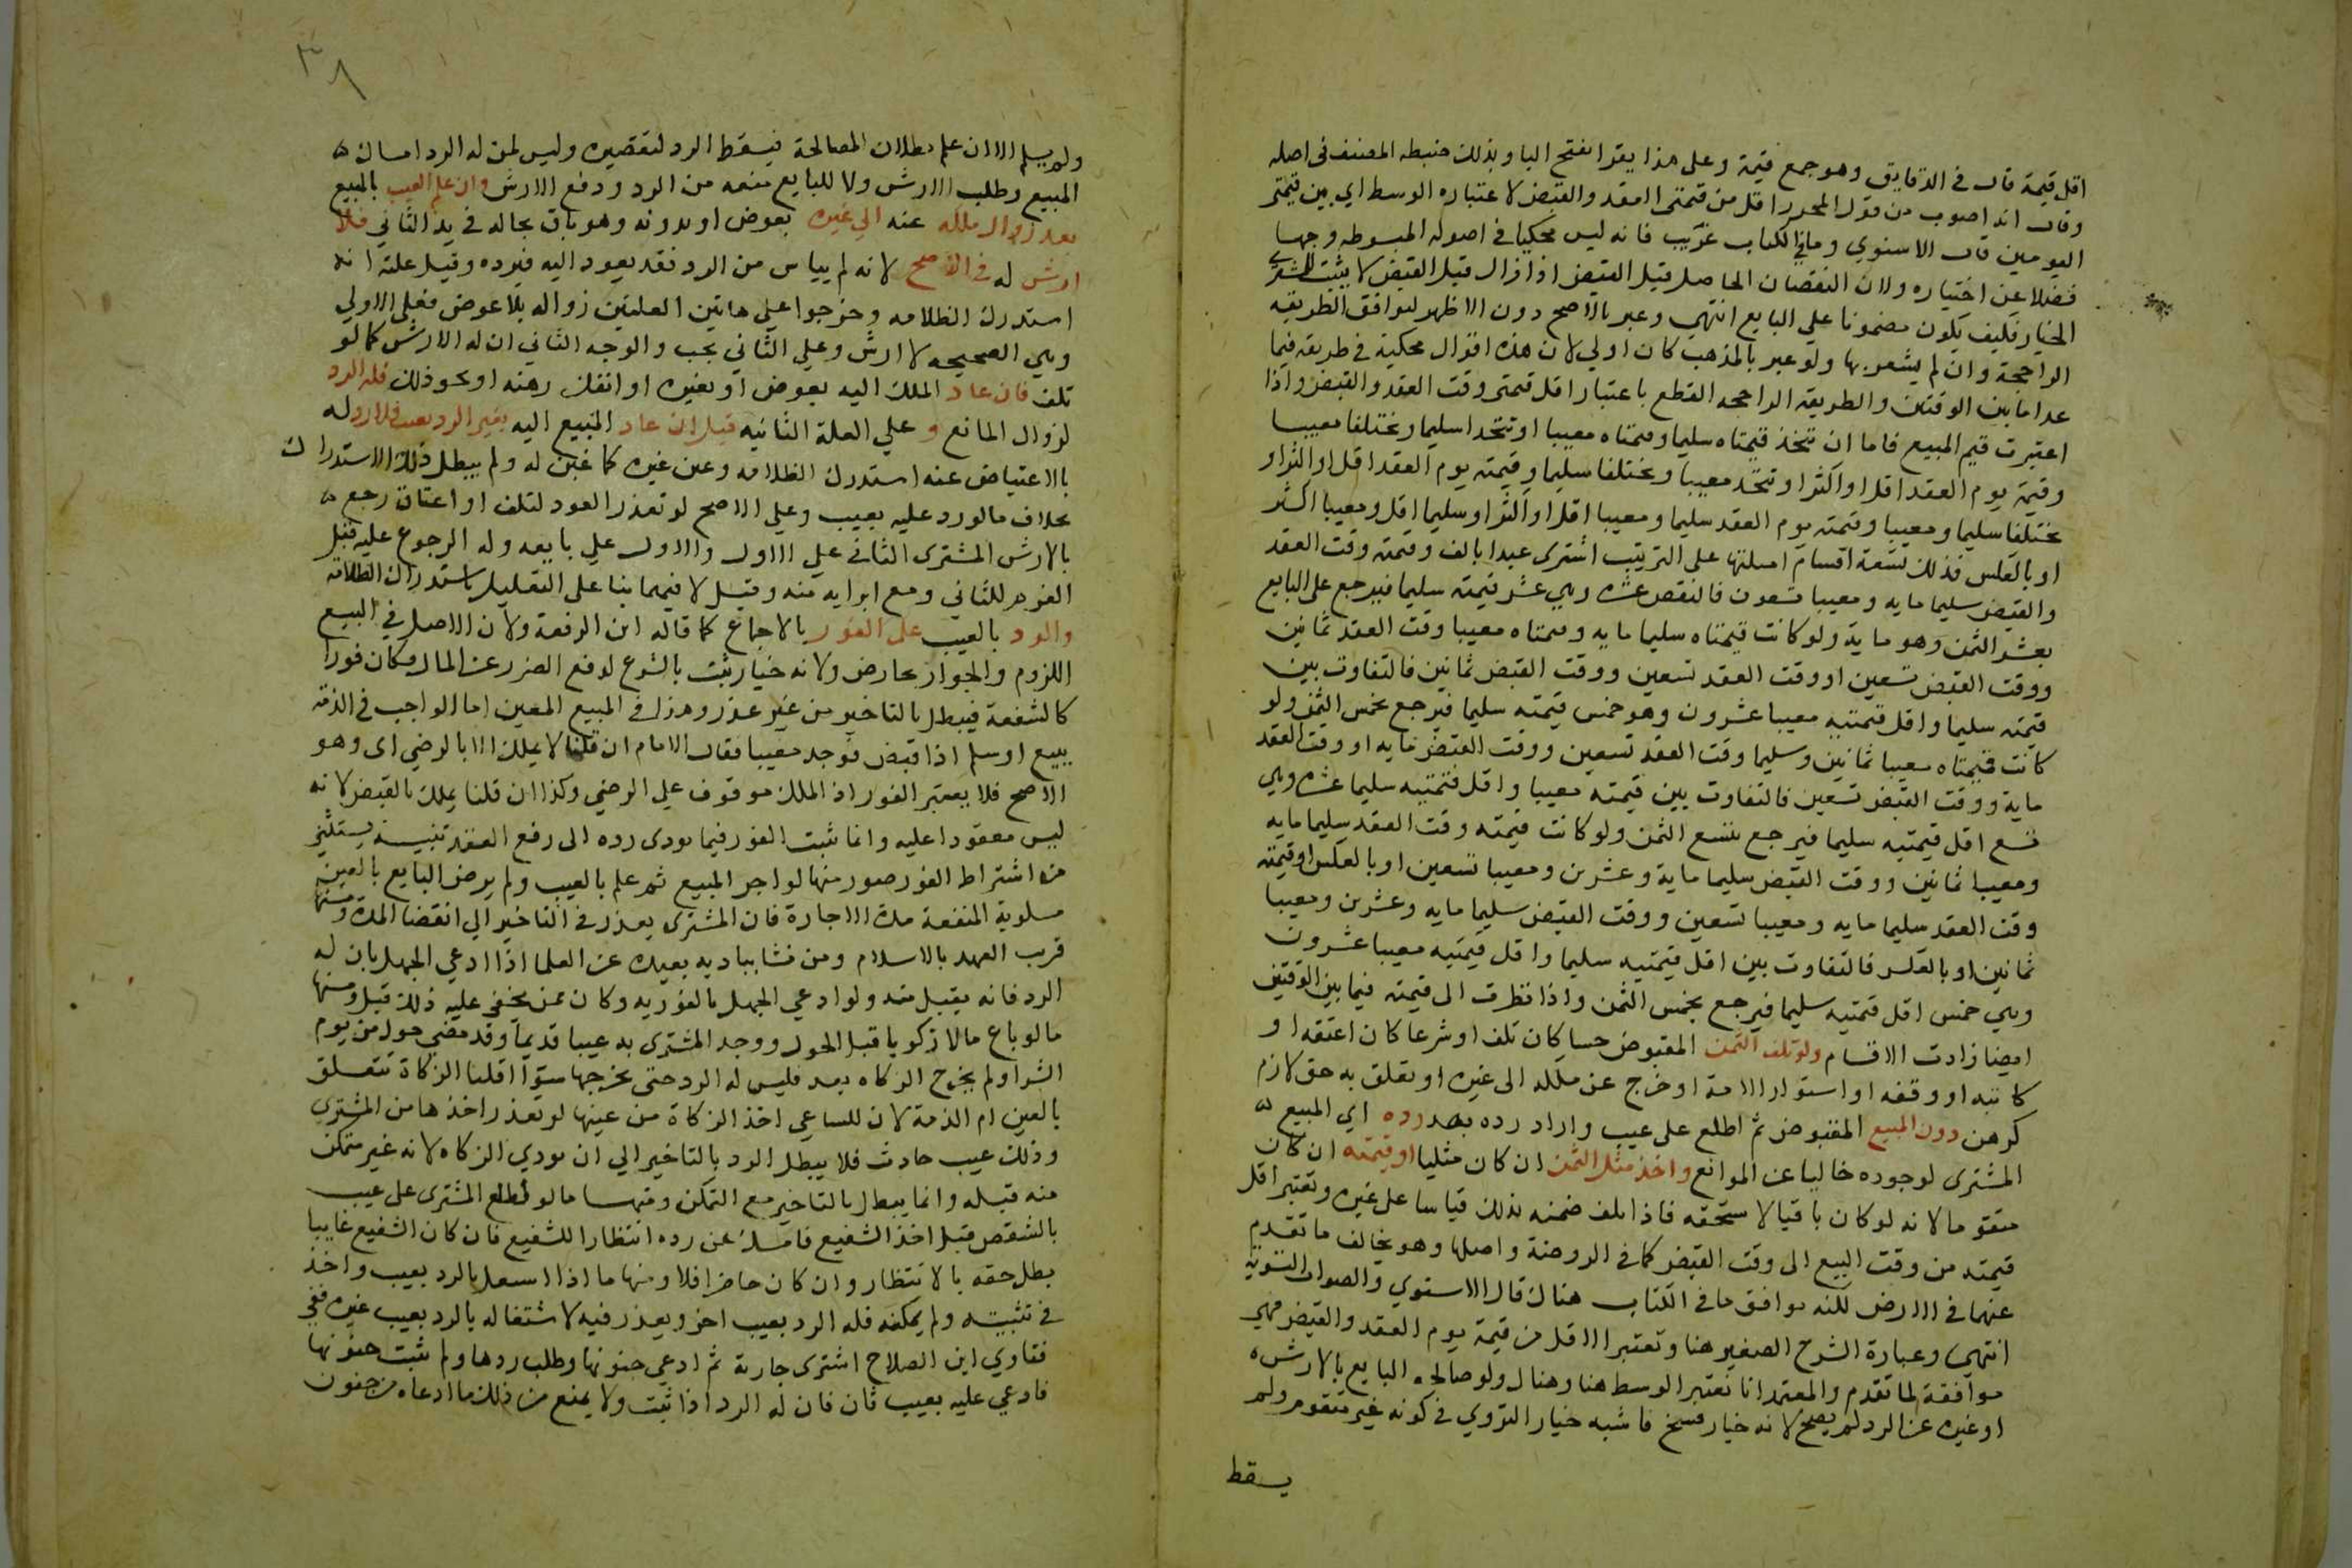 اقل قيمة قال في الدقايق وهو جمع قيمة وعلى هذا يقرا بفتح اليا وبذلك ضبطه المصنف في اصله
وقال انه اصوب من قول المحرر اقل من قيمتي العقد والقبض لاعتباره الوسط اي بين قيمتي
اليومين قال الاسنوي وما في الكتاب غريب فانه ليس محكيا في اصوله المبسوطه وجها
فضلا عن اختياره ولان النقصان الحاصل قبل القبض اذا زال قبل القبض لا يثبت للمشتري
الخيار فكيف يكون مضمونا علي البايع انتهي وعبر بالاصح دون الاظهر ليوافق الطريقه
الراجحة وان لم يشعر بها ولو عبر بالمذهب كان اولي لان هذه اقوال محكية في طريقه فيما
عدا ما بين الوقتين والطريقه الراجحه القطع باعتبار اقل قيمتي وقت العقد والقبض واذا
اعتبرت قيم المبيع فاما ان تتخذ قيمتاه سليما وقيمتاه معيبا او تتحدا سليما ويختلفا معيبا
وقيمة يوم العقد اقل او اكثر او تتحد معيبا ويختلفا سليما وقيمته يوم العقد اقل او اكثر او
يختلفا سليما ومعيبا وقيمته يوم العقد سليما ومعيبا اقل او اكثر او سليما اقل ومعيبا اكثر
او بالعكس فذلك تسعة اقسام امثلتها على الترتيب اشترى عبدا بالف وقيمته وقت العقد
والقبض سليما مايه ومعيبا تسعون فالنقص عشره وهي عشر قيمته سليما فيرجع على البايع
بعشر الثمن وهو ماية ولو كانت قيمتاه سليما مايه وقيمتاه معيبا وقت العقد ثمانين
ووقت القبض تسعين او وقت العقد تسعين ووقت القبض ثمانين فالتفاوت بين
قيمته سليما واقل قيمتيه معيبا عشرون وهو خمس قيمته سليما فيرجع بخمس الثمن ولو
كانت قيمتاه معيبا ثمانين وسليما وقت العقد تسعين ووقت القبض مايه او وقت العقد
ماية ووقت القبض تسعين فالتفاوت بين قيمته معيبا واقل قيمتيه سليما عشره وهي
تسع اقل قيمتيه سليما فيرجع بتسع الثمن ولو كانت قيمته وقت العقد سليما مايه
ومعيبا ثمانين ووقت القبض سليما ماية وعشرين ومعيبا تسعين او بالعكس او قيمته
وقت العقد سليما مايه ومعيبا تسعين ووقت القبض سليما مايه وعشرين ومعيبا
ثمانين او بالعكس فالتفاوت بين اقل قيمتيه سليما واقل قيمتيه معيبا عشرون
وهي خمس اقل قيمتيه سليما فيرجع بخمس الثمن واذا نظرت الى قيمته فيما بين الوقتين
ايضا زادت الاقسام ولو تلف الثمن المقبوض حسا كان تلف او شرعا كان اعتقه او
كاتبه او وقفه او استولد الامة او خرج عن ملكه الى غيره او تعلق به حق لازم
كرهن دون المبيع المقبوض ثم اطلع على عيب واراد رده بعد رده اي المبيع ه
المشترى لوجوده خاليا عن الموانع واخذ مثل الثمن ان كان مثليا او قيمته ان كان
متقوما لانه لو كان باقيا لاستحقه فاذا تلف ضمنه بذلك قياسا على غيره وتعتبر اقل
قيمته من وقت البيع الى وقت القبض كما في الروضة واصلها وهو يخالف ما تقدم
عنهما في الارض لكنه يوافق ما في الكتاب هناك قال الاسنوي والصواب التسوية
انتهي وعبارة الشرح الصغير هنا وتعتبر الاقل من قيمة يوم العقد والقبض فهي
موافقة لما تقدم والمعتمد انا نعتبر الوسط هنا وهناك ولو صالحه البايع بالارش ه
او غيره عن الرد لم يصح لانه خيار فسخ فاشبه خيار التروي في كونه غير متقوم ولم
يسقط
٣٨
ولم يسلم الا ان علم بطلان المصالحة فيسقط الرد لتقصيره وليس لمن له الرد امساك ه
المبيع وطلب الارش ولا للبايع منعه من الرد ودفع الارش وان علم العيب بالمبيع
بعد زوال ملكه عنه الي غيره بعوض او بدونه وهو باق بحاله في يد الثاني فلا
ارش له في الاصح لانه لم يياس من الرد فقد يعود اليه فيرده وقيل علته انه
استدرك الظلامه وخرجوا علي هاتين العلتين زواله بلا عوض فعلي الاولي
وهي الصحيحه لا ارش وعلي الثاني يجب والوجه الثاني ان له الارش كما لو
تلف فان عاد الملك اليه بعوض او بغيره او انفك رهنه او نحو ذلك فله الرد
لزوال المانع و علي العلة الثانيه قيل ان عاد المبيع اليه بغير الرد بعيب فلا رد له
بالاعتياض عنه استدرك الظلامه وغبن غيره كما غبن له ولم يبطل ذلك الاستدراك
بخلاف ما لو رد عليه بعيب وعلي الاصح لو تعذر العود لتلف او اعتاق رجع ه
بالارش المشترى الثاني علي الاول والاول علي بايعه وله الرجوع عليه قبل
الغرم للثاني ومع ابرايه منه وقيل لا فيهما بنا على التعليل باستدراك الظلامة
والرد بالعيب على الفور بالاجماع كما قاله ابن الرفعة ولان الاصل في البيع
اللزوم والجواز عارض ولانه خيار ثبت بالشرع لدفع الضرر عن المال فكان فورا
كالشفعة فيبطل بالتاخير من غير عذر وهذا في المبيع المعين اما الواجب في الذمة
ببيع او سلم اذا قبض فوجد معيبا فقال الامام ان قلنا لا يملك الا بالرضي اى وهو
الاصح فلا يعتبر الفور اذ الملك موقوف علي الرضي وكذا ان قلنا يملك بالقبض لانه
ليس معقودا عليه وانما ثبت الفور فيما يودى رده الى رفع العقد تنبيه يستثني
من اشتراط الفور صور منها لو اجر المبيع ثم علم بالعيب ولم يرض البايع بالعين
مسلوبة المنفعة مدة الاجارة فان المشترى يعذر في التاخير الي انقضا المدة ومنها
قرب العهد بالاسلام ومن نشا ببادية بعيده عن العلما اذا ادعي الجهل بان له
الرد فانه يقبل منه ولو ادعي الجهل بالفوريه وكان ممن يخفي عليه ذلك قبل ومنها
ما لو باع مالا زكويا قبل الحول ووجد المشترى به عيبا قديما وقد مضي حول من يوم
الشرا ولم يخرج الزكاه بعد فليس له الرد حتى يخرجها سوآ اقلنا الزكاة تتعلق
بالعين ام الذمة لان للساعي اخذ الزكاة من عينها لو تعذر اخذها من المشتري
وذلك عيب حادث فلا يبطل الرد بالتاخير الي ان يودي الزكاه لانه غير متمكن
منه قبله وانما يبطل بالتاخير مع التمكن ومنها ما لو اطلع المشترى على عيب
بالشقص قبل اخذ الشفيع فامسك عن رده انتظارا للشفيع فان كان الشفيع غايبا
بطل حقه بالانتظار وان كان حاضرا فلا ومنها ما اذا اشتغل بالرد بعيب واخذ
في تثبيته ولم يمكنه فله الرد بعيب اخر ويعذر فيه لاشتغاله بالرد بعيب غيره ففي
فتاوي ابن الصلاح اشترى جارية ثم ادعي جنونها وطلب ردها ولم يثبت جنونها
فادعي عليه بعيب ثان فان له الرد اذا ثبت ولا يمنع من ذلك ما ادعاه من جنون